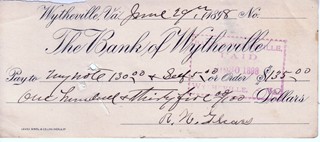 Wytheville, Va. June 29th, 1898 No.
The Bank of Wytheville
PAID
Pay to my note 130.00 & Self 5.00 or Order $135.00
One hundred & thirty five 00/100 Dollars